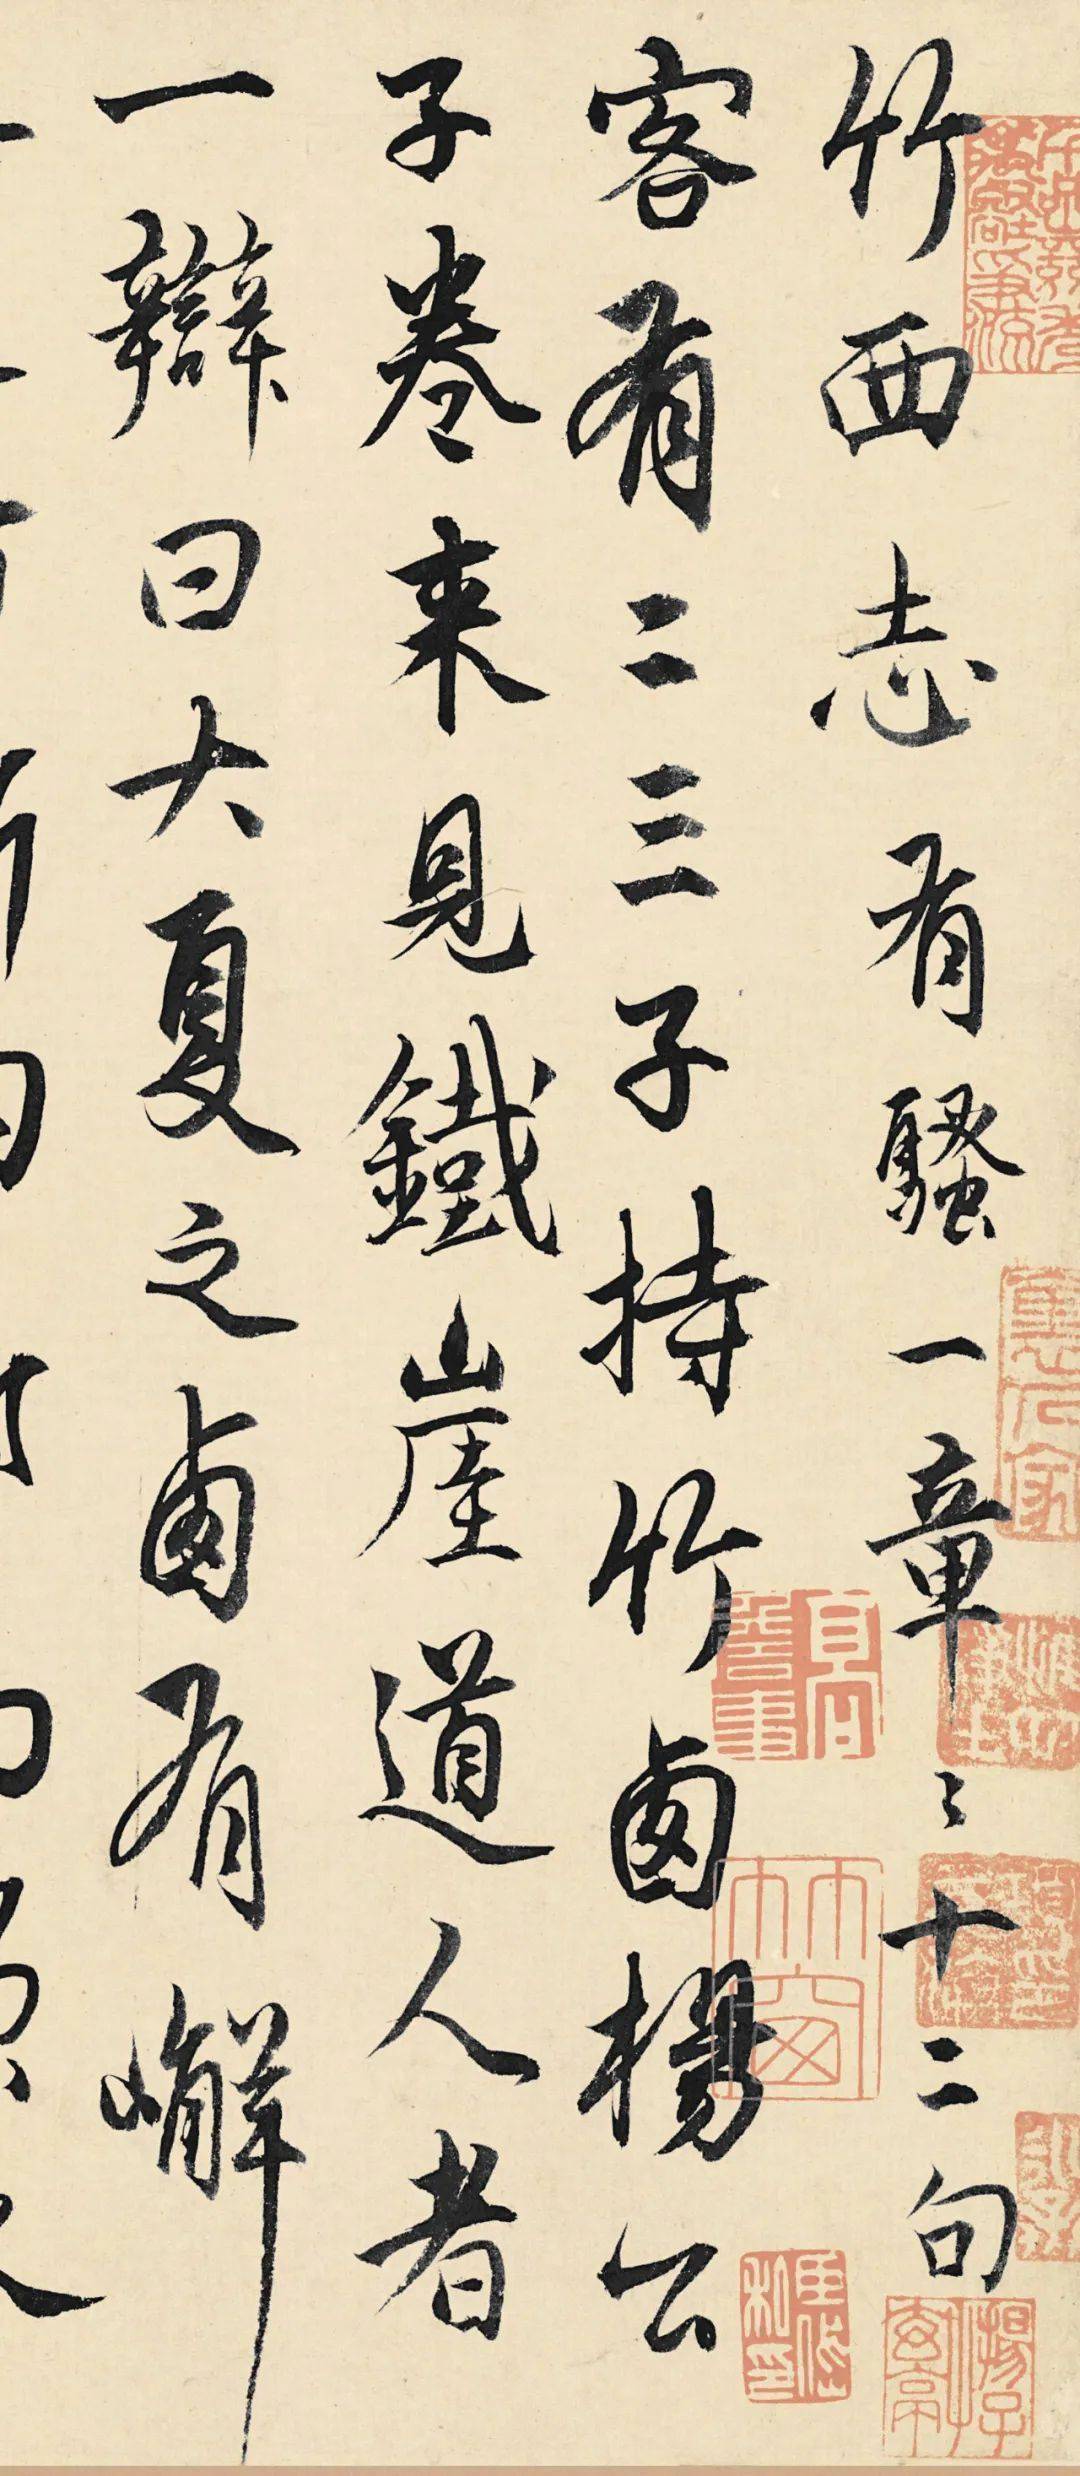 竹西志有騷一章〻十二句
客有二三子持竹卤楊公
子卷来見鐵崖道人者
一辯曰大夏之卤有嶰